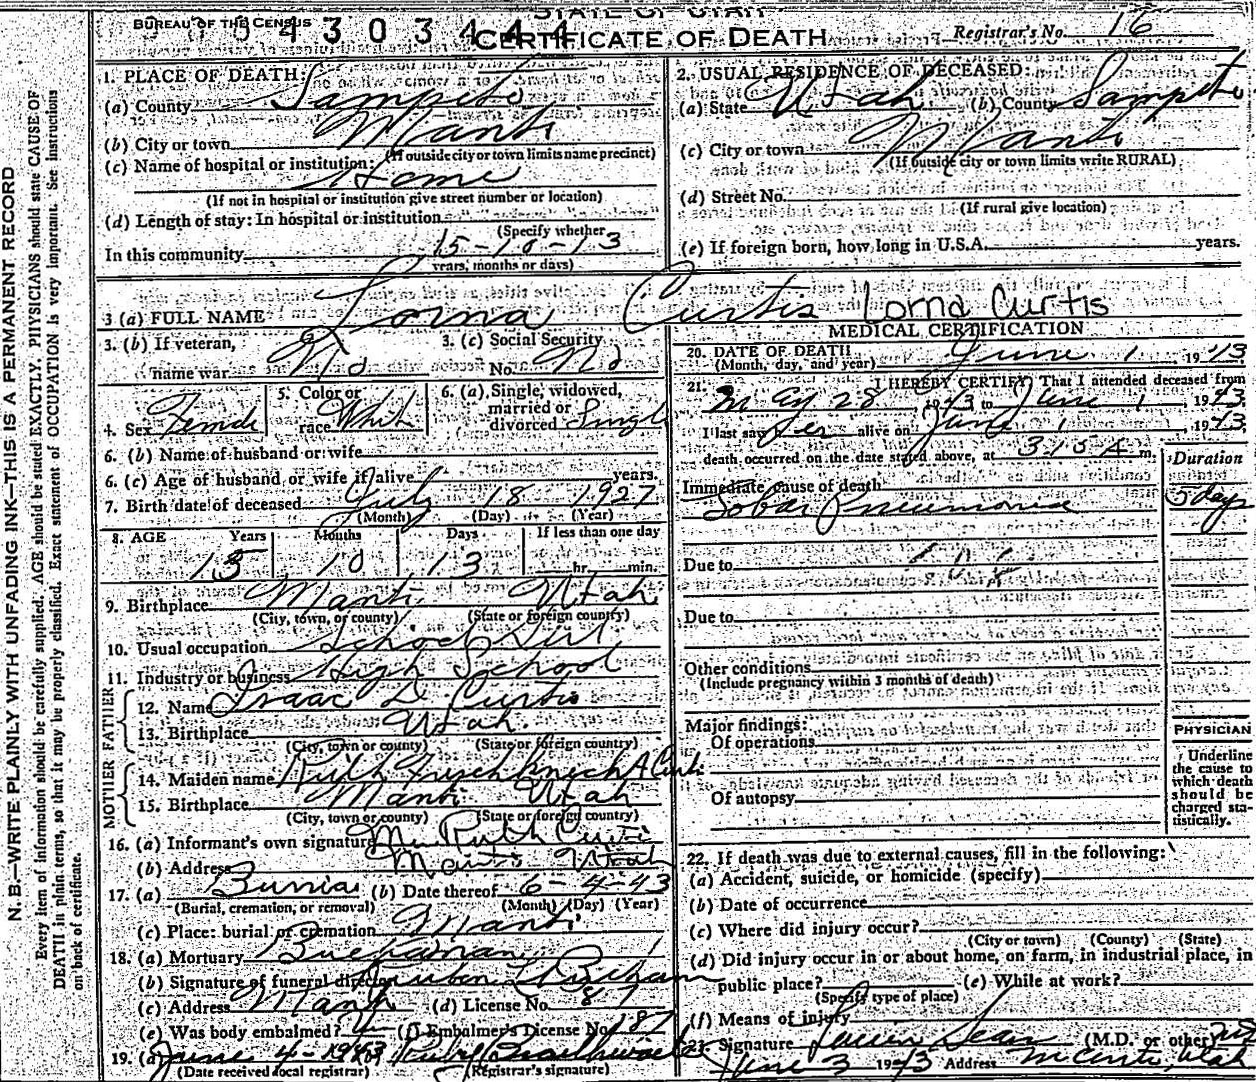 STATE OF UTAH
BUREAU OF THE CENSUS
CERTIFICATE OF DEATH
Registrar's No. 16
N. B.—WRITE PLAINLY WITH UNFADING INK—THIS IS A PERMANENT RECORD
Every item of information should be carefully supplied. AGE should be stated EXACTLY. PHYSICIANS should state CAUSE OF
DEATH in plain terms, so that it may be properly classified. Exact statement of OCCUPATION is very important. See instructions
on back of certificate.
1. PLACE OF DEATH:
(a) County Sanpete
(b) City or town Manti
(If outside city or town limits name precinct)
(c) Name of hospital or institution:
Home
(If not in hospital or institution give street number or location)
(d) Length of stay: In hospital or institution
(Specify whether
In this community 15-10-13
years, months or days)
2. USUAL RESIDENCE OF DECEASED:
(a) State Utah (b) County Sanpete
(c) City or town Manti
(If outside city or town limits write RURAL)
(d) Street No.
(If rural give location)
(e) If foreign born, how long in U.S.A. years.
3 (a) FULL NAME Lorna Curtis Lorna Curtis
3. (b) If veteran, name war No
3. (c) Social Security No. No
4. Sex Female
5. Color or race White
6. (a) Single, widowed, married or divorced Single
6. (b) Name of husband or wife
6. (c) Age of husband or wife if alive years.
7. Birth date of deceased July 18 1927
(Month) (Day) (Year)
8. AGE Years Months Days If less than one day
15 10 13 hr. min.
9. Birthplace Manti Utah
(City, town, or county) (State or foreign country)
10. Usual occupation School Girl
11. Industry or business High School
FATHER
12. Name Isaac D. Curtis
13. Birthplace Utah.
(City, town or county) (State or foreign country)
MOTHER
14. Maiden name Ruth
15. Birthplace Manti Utah
(City, town or county) (State or foreign country)
16. (a) Informant's own signature Ruth Curtis
(b) Address Manti Utah
17. (a) Burial (b) Date thereof 6-4-43
(Burial, cremation, or removal) (Month) (Day) (Year)
(c) Place: burial or cremation Manti
18. (a) Mortuary
(b) Signature of funeral director
(c) Address Manti (d) License No. 87
(e) Was body embalmed? (f) Embalmer's License No. 187
19. (a) June 4-1943 Ruby Braithwaite
(Date received local registrar) (Registrar's signature)
MEDICAL CERTIFICATION
20. DATE OF DEATH June 1 1943
(Month, day, and year)
21. I HEREBY CERTIFY, That I attended deceased from
May 28, 1943 to June 1, 1943
I last saw her alive on June 1, 1943
death occurred on the date stated above, at 3:15 A m.
Duration
Immediate cause of death
Lobar Pneumonia 5 days
Due to
Due to
Other conditions
(Include pregnancy within 3 months of death)
Major findings:
Of operations
Of autopsy
PHYSICIAN
Underline
the cause to
which death
should be
charged sta-
tistically.
22. If death was due to external causes, fill in the following:
(a) Accident, suicide, or homicide (specify)
(b) Date of occurrence
(c) Where did injury occur?
(City or town) (County) (State)
(d) Did injury occur in or about home, on farm, in industrial place, in
public place? (e) While at work?
(Specify type of place)
(f) Means of injury
23. Signature (M.D. or other)
June 3 1943 Address Manti, Utah